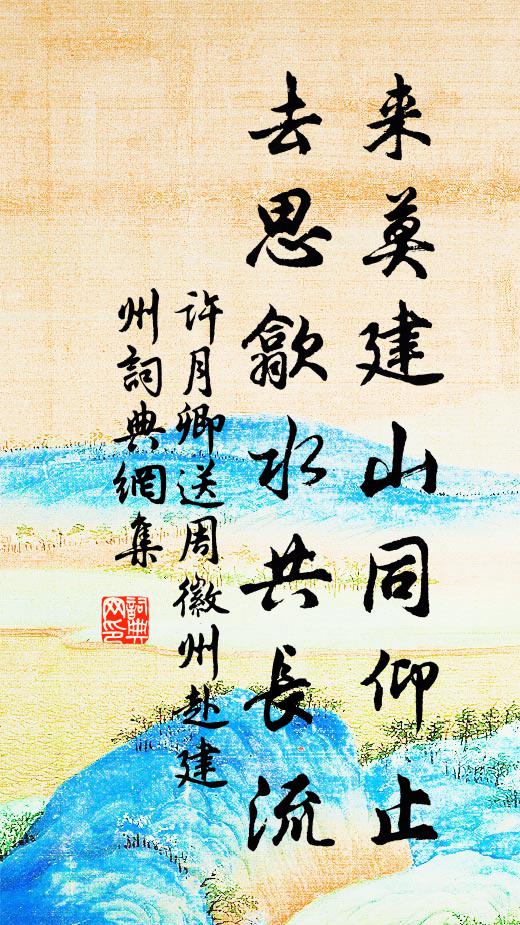 来莫建山同仰止
去思歙水共長流
許月卿送周徽州赴建
州詞典網集
詞典网印